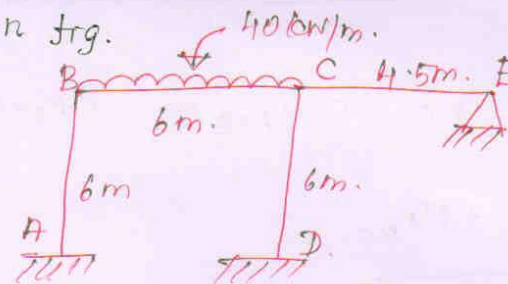 n fig.
40 kN/m.
B
C
4.5m.
E
6m.
6m
6m.
A
D.